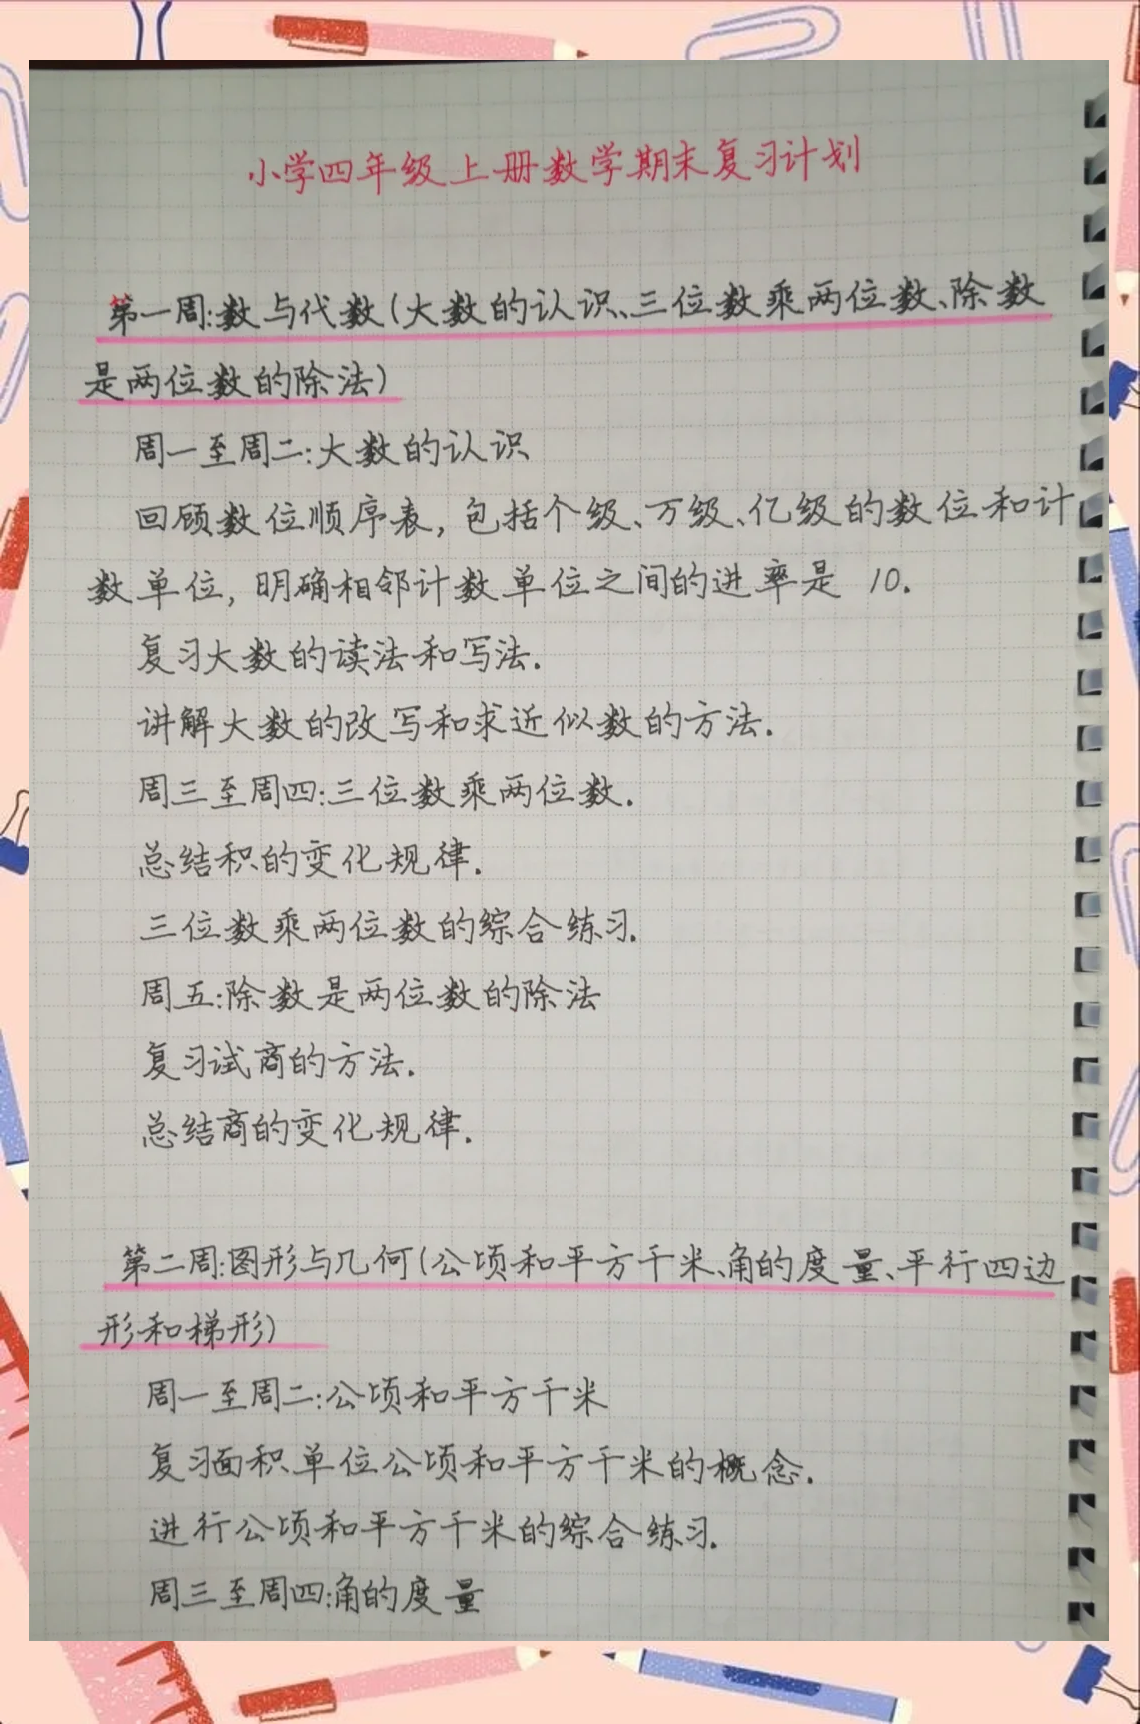 小学四年级上册数学期末复习计划
第一周:数与代数(大数的认识、三位数乘两位数、除数
是两位数的除法)
周一至周二:大数的认识
回顾数位顺序表,包括个级、万级、亿级的数位和计
数单位,明确相邻计数单位之间的进率是 10.
复习大数的读法和写法.
讲解大数的改写和求近似数的方法.
周三至周四:三位数乘两位数.
总结积的变化规律.
三位数乘两位数的综合练习.
周五:除数是两位数的除法
复习试商的方法.
总结商的变化规律.
第二周:图形与几何(公顷和平方千米、角的度量、平行四边
形和梯形)
周一至周二:公顷和平方千米
复习面积单位公顷和平方千米的概念.
进行公顷和平方千米的综合练习.
周三至周四:角的度量